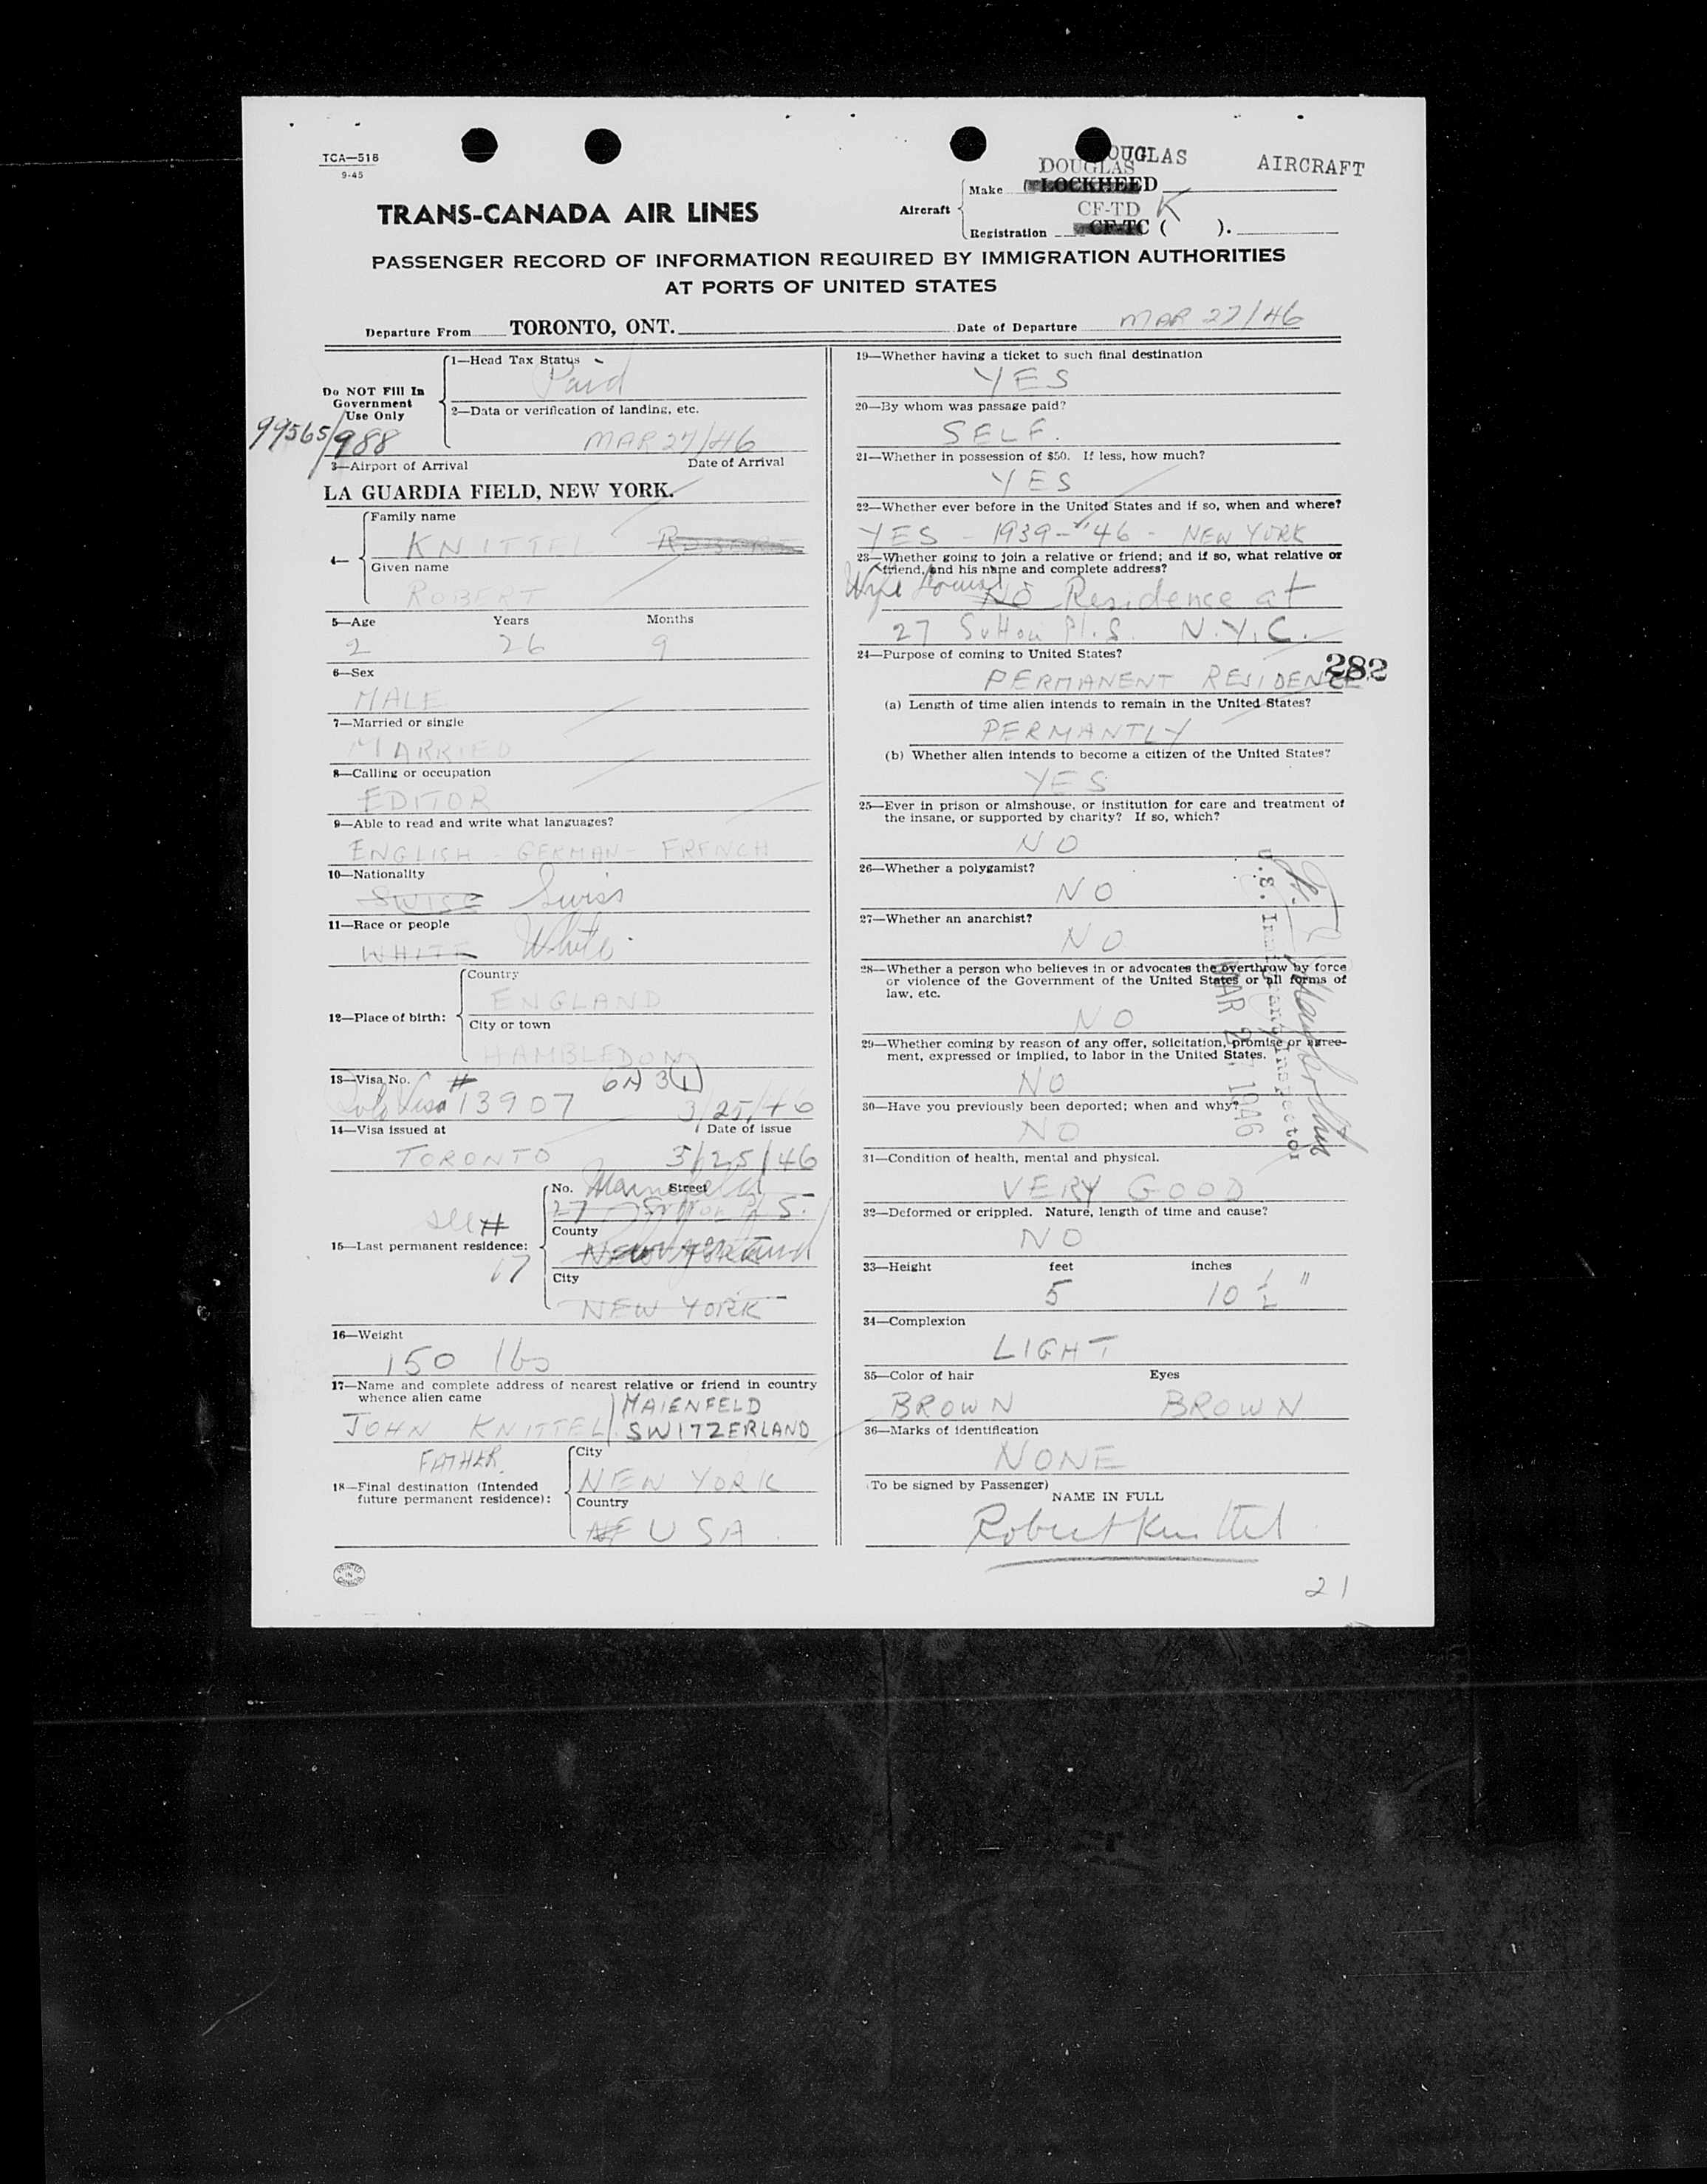 TCA—518
9-45
DOUGLAS
DOUGLAS AIRCRAFT
Aircraft
Make LOCKHEED
CF-TD K
Registration CF-TC ( ).
TRANS-CANADA AIR LINES
PASSENGER RECORD OF INFORMATION REQUIRED BY IMMIGRATION AUTHORITIES
AT PORTS OF UNITED STATES
Departure From TORONTO, ONT. Date of Departure MAR 27/46
Do NOT Fill In
Government
Use Only
99565/988
1—Head Tax Status
Paid
2—Data or verification of landing, etc.
MAR 27/46
3—Airport of Arrival Date of Arrival
LA GUARDIA FIELD, NEW YORK.
4—
Family name
KNITTEL ROBERT
Given name
ROBERT
5—Age Years Months
2 26 9
6—Sex
MALE
7—Married or single
MARRIED
8—Calling or occupation
EDITOR
9—Able to read and write what languages?
ENGLISH - GERMAN - FRENCH
10—Nationality
SWISE Swiss
11—Race or people
WHITE White.
12—Place of birth:
Country
ENGLAND
City or town
HAMBLEDON
13—Visa No. # 6A 3(1)
Visa 13907 3/25/46
14—Visa issued at Date of issue
TORONTO 3/25/46
15—Last permanent residence:
see #
17
No. Street
Maienfeld
27 Sutton Pl. S.
County
NEW YORK
City
NEW YORK
16—Weight
150 lbs
17—Name and complete address of nearest relative or friend in country
whence alien came
JOHN KNITTEL MAIENFELD
SWITZERLAND
FATHER
18—Final destination (Intended
future permanent residence):
City
NEW YORK
Country
USA.
PRINTED
IN
CANADA
19—Whether having a ticket to such final destination
YES
20—By whom was passage paid?
SELF.
21—Whether in possession of $50. If less, how much?
YES
22—Whether ever before in the United States and if so, when and where?
YES - 1939-46 - NEW YORK
23—Whether going to join a relative or friend; and if so, what relative or
friend, and his name and complete address?
Wife NO Residence at
27 Sutton Pl. S. N.Y.C.
24—Purpose of coming to United States?
282
PERMANENT RESIDENCE
(a) Length of time alien intends to remain in the United States?
PERMANTLY
(b) Whether alien intends to become a citizen of the United States?
YES
25—Ever in prison or almshouse, or institution for care and treatment of
the insane, or supported by charity? If so, which?
NO
26—Whether a polygamist?
NO
27—Whether an anarchist?
NO
28—Whether a person who believes in or advocates the overthrow by force
or violence of the Government of the United States or all forms of
law, etc.
NO
29—Whether coming by reason of any offer, solicitation, promise or agree-
ment, expressed or implied, to labor in the United States.
NO
30—Have you previously been deported; when and why?
NO
31—Condition of health, mental and physical.
VERY GOOD
32—Deformed or crippled. Nature, length of time and cause?
NO
33—Height feet inches
5 10 ½ "
34—Complexion
LIGHT
35—Color of hair Eyes
BROWN BROWN
36—Marks of identification
NONE
(To be signed by Passenger)
NAME IN FULL
Robert Knittel
21
U.S. Immigrant Inspector
MAR 27 1946